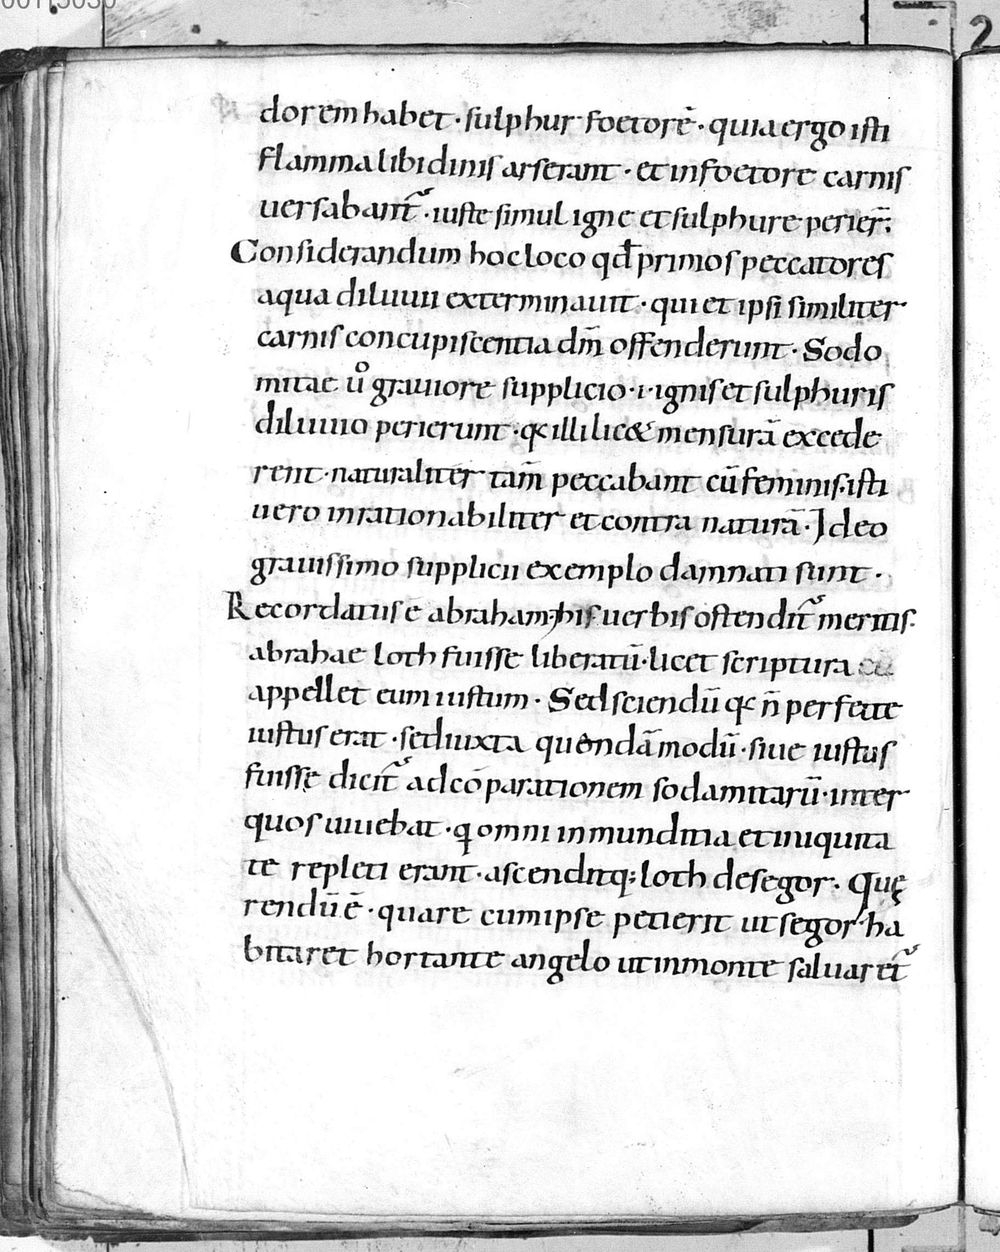 dorem habet · sulphur foetorē · quia ergo isti
flamma libidinis arserant · et in foetore carnis
uersabant᷑ · iuste simul igne et sulphure perier̄;
Considerandum hoc loco qđ primos peccatores
aqua diluuii exterminauit · qui et ipsi similiter
carnis concupiscentia dm̄ offenderunt · Sodo
mitae ů grauiore supplicio · i · ignis et sulphuris
diluuio perierunt · q illi lic& mensurā excede
rent · naturaliter tam̄ peccabant cū feminis · isti
uero inrationabiliter et contra naturā · Ideo
grauissimo supplicii exemplo damnati sunt ·
Recordatus ē abraham · his uerbis ostendit᷑ meritis
abrahae loth fuisse liberatū · licet scriptura
appellet eum iustum · Sed sciendū q n̄ perfecte
iustus erat · sed iuxta quendā modū · siue iustus
fuisse dicit᷑ ad cōparationem sodamitarū · inter
quos uiuebat · q omni inmunditia et iniquita
te repleti erant · ascenditq; loth de segor · Quę
rendū ē · quare cum ipse petierit ut segor ha
bitaret hortante angelo ut in monte saluaret᷑